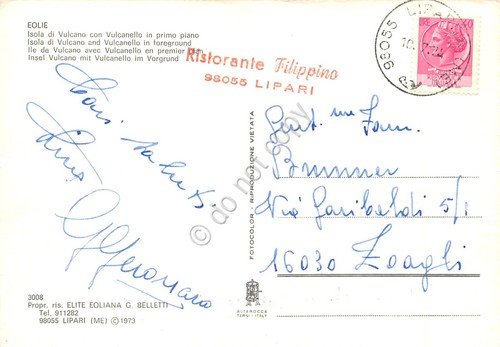 EOLIE
Isola di Vulcano con Vulcanello in primo piano
Isola di Vulcano and Vulcanello in foreground
Ile de Vulcano avec Vulcanello en premier plan
Insel Vulcano mit Vulcanello im Vorgrund
Ristorante Filippino
98055 LIPARI
98055 LIPARI
Cari saluti
Gent.me Fam.
Brunner
Via Garibaldi 5/1
16030 Zoagli
FOTOCOLOR - RIPRODUZIONE VIETATA
do not copy
3008
Propr. ris. ELITE EOLIANA G. BELLETTI
Tel. 911282
98055 LIPARI (ME) © 1973
ALTEROCCA
TERNI - ITALY